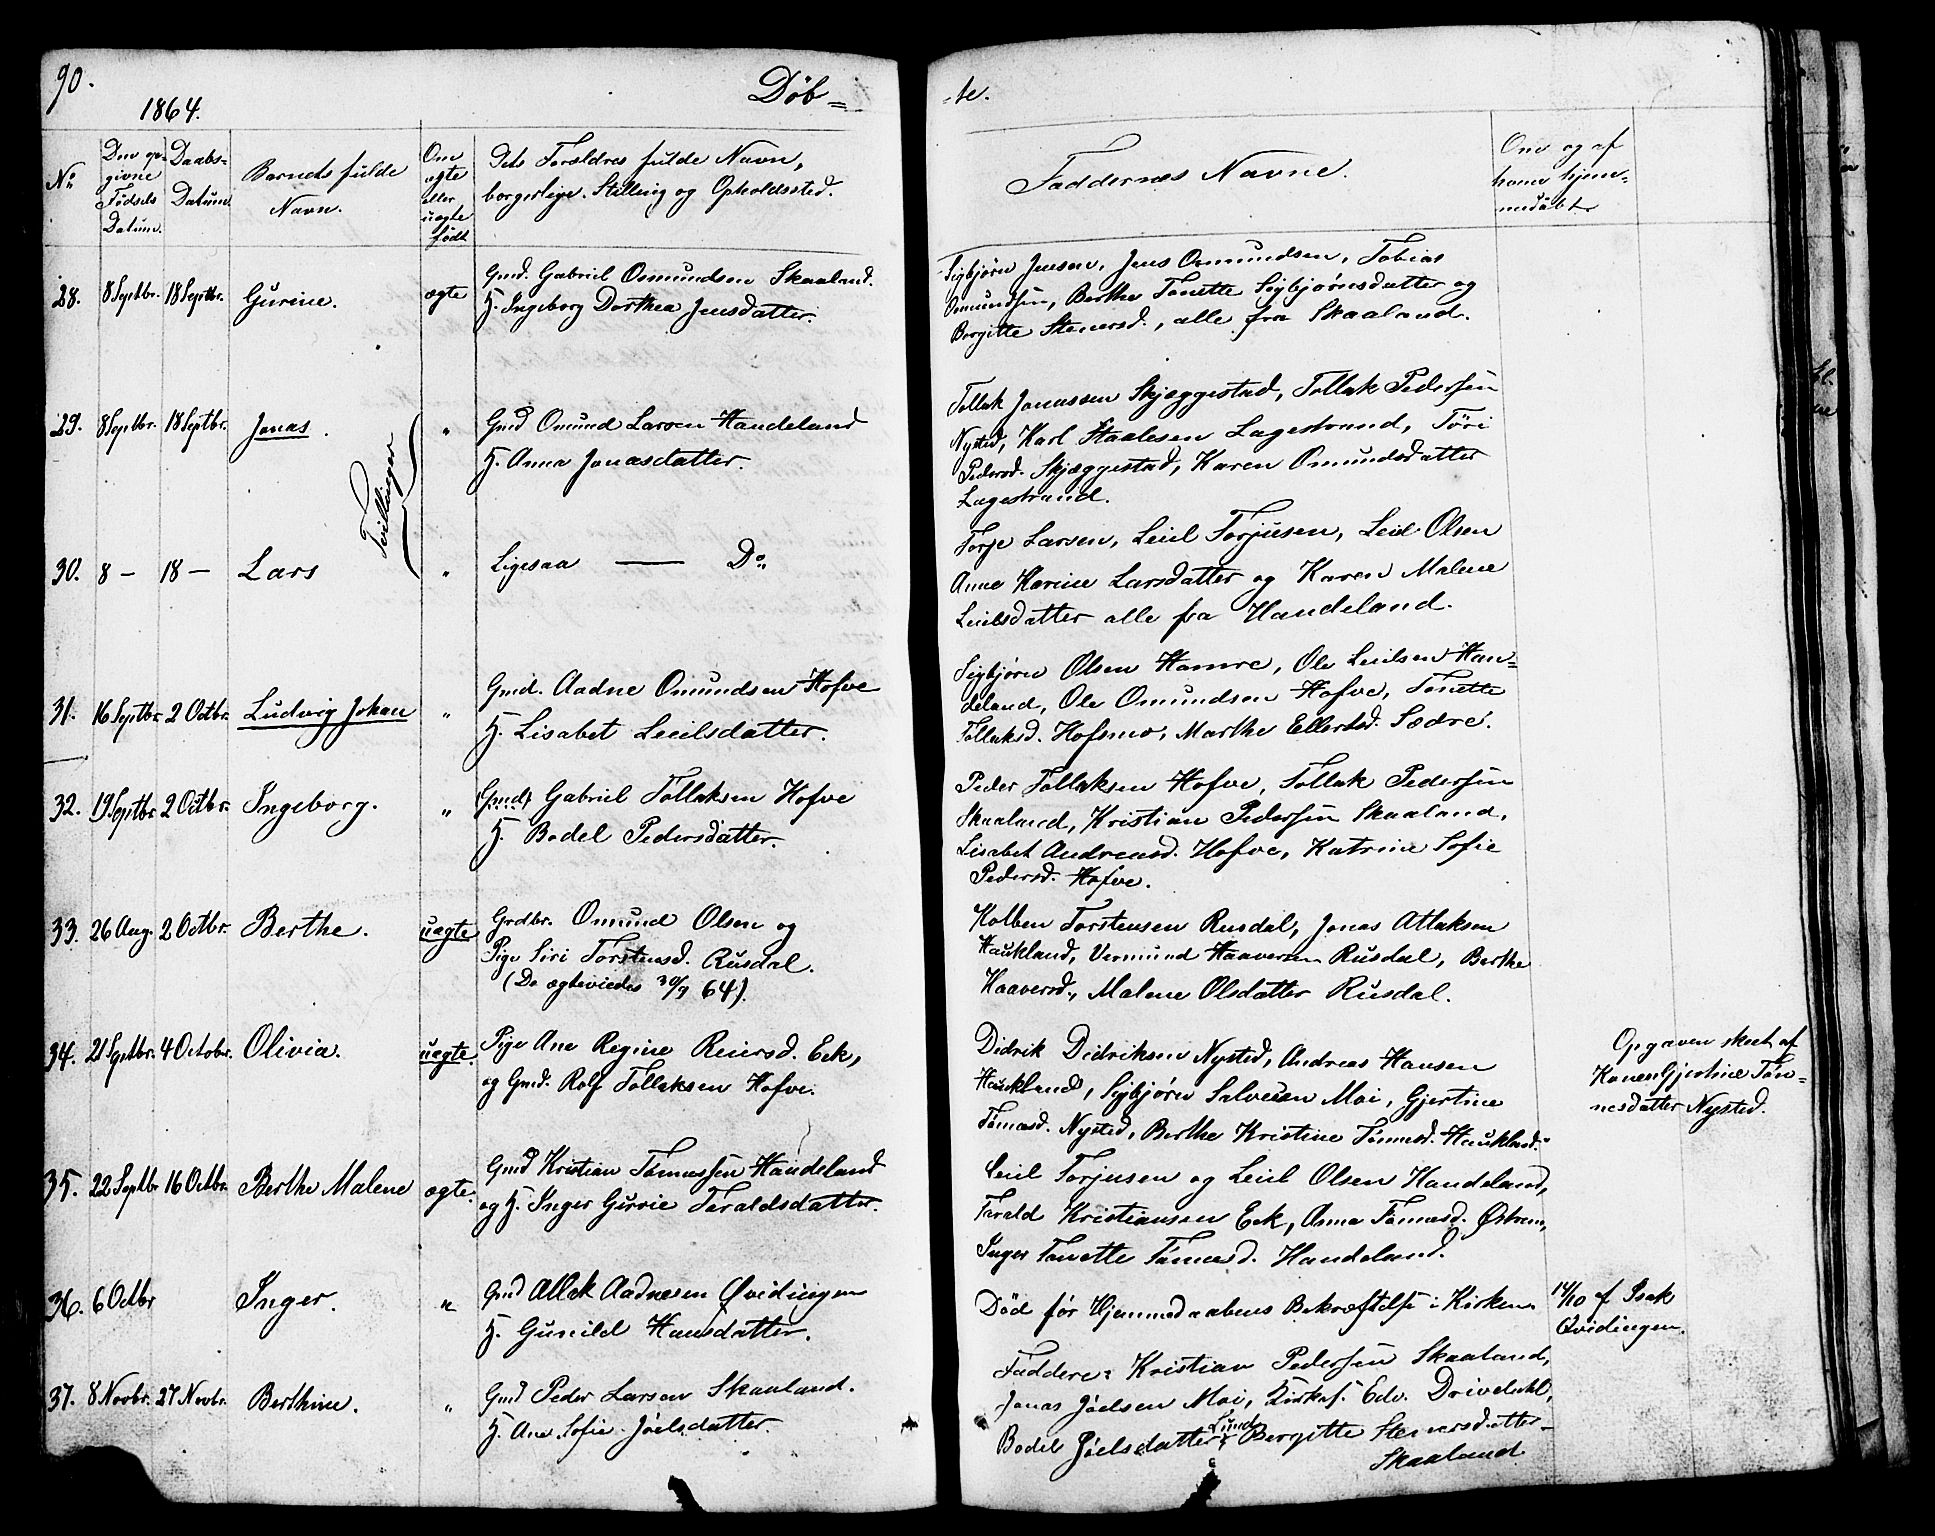 90.
1864.
Døb-
-te.
No
Den opgivne Fødsels Datum.
Daabs-Datum.
Barnets fulde Navn.
Om ægte eller uægte født
Dets Forældres fulde Navn, borgerlige Stilling og Opholdssted.
Faddernes Navne.
Om og af hvem hjemmedøbt
28. 8 Septbr. 18 Septbr. Gurine. ægte
Gmd. Gabriel Osmundsen Skaaland.
H. Ingeborg Dorthea Jensdatter.
Sigbjørn Jensen, Jens Osmundsen, Tobias
Osmundsen, Berthe Tonette Sigbjørnsdatter og
Borgitte Stenersd., alle fra Skaaland.
29. 8 Septbr. 18 Septbr. Jonas. "
Tvillinger
Gmd Omund Larsen Handeland
H. Anna Jonasdatter.
Tollak Jonassen Skjæggestad, Tollak Pedersen
Nysted, Karl Staalesen Lagestrand, Töri
Pedersd. Skjæggestad, Karen Omundsdatter
Lagestrand.
30. 8 — 18 — Lars "
Ligesaa — Do.
Torje Larsen, Leiel Torjusen, Leiel Olsen
Anne Karine Larsdatter og Karen Malene
Leielsdatter alle fra Handeland.
31. 16 Septbr. 2 Octbr. Ludvig Johan "
Gmd. Aadne Omundsen Hofve
H. Lisabet Leielsdatter.
Sigbjørn Olsen Hamre, Ole Leielsen Han-
deland, Ole Omundsen Hofve, Tonette
Tollaksd. Hofsmo, Marthe Ellertsd. Sædre.
32. 19 Septbr. 2 Octbr. Ingeborg. "
(Gmd) Gabriel Tollaksen Hofve
H. Bodel Pedersdatter.
Peder Tollaksen Hofve, Tollak Pedersen
Skaaland, Kristian Pedersen Skaaland,
Lisabet Andreasd. Hofve, Katrine Sofie
Pedersd. Hofve.
33. 26 Aug. 2 Octbr. Berthe. uægte
Grdbr. Omund Olsen og
Pige Siri Torstensd. Rusdal.
(De ægteviedes 30/9 64).
Kolben Torstensen Rusdal, Jonas Atlaksen
Haukland, Vermund Haaversen Rusdal, Berthe
Haaversd., Malene Olsdatter Rusdal.
34. 21 Septbr. 4 Octobr. Olivia. uægte.
Pige Ane Regine Reiersd. Eek,
og Gmd. Rolf Tollaksen Hofve.
Didrik Didriksen Nysted, Andreas Hansen
Haukland, Sigbjørn Salvesen Moi, Gjertine
Tønnesd. Nysted, Berthe Kristine Tønnesd. Haukland.
Opgaven skeet af
Konen Gjertine Tøn-
nesdatter Nysted.
35. 22 Septbr 16 Octbr. Berthe Malene ægte.
Gmd Kristian Tønnessen Handeland
og H. Inger Gurie Taraldsdatter.
Leiel Torjusen og Leiel Olsen Handeland,
Tarald Kristiansen Eek, Anna Tønnesd. Østrem,
Inger Tonette Tønnesd. Handeland.
36. 6 Octbr Inger. "
Gmd Atlak Aadnesen Qvidingen
H. Gunild Hansdatter.
Død før Hjemmedaabens Bekræftelse i Kirken.
14/10 af Isak
Qvidingen.
37. 8 Novbr. 27 Novbr. Berthine. "
Gmd Peder Larsen Skaaland.
H. Ane Sofie Joelsdatter.
Faddere: Kristian Pedersen Skaaland,
Jonas Joelsen Moi, Kirkes. Edv. Drivdahl,
Bodel Joelsdatter Lund, Bergitte Stenersdatter
Skaaland